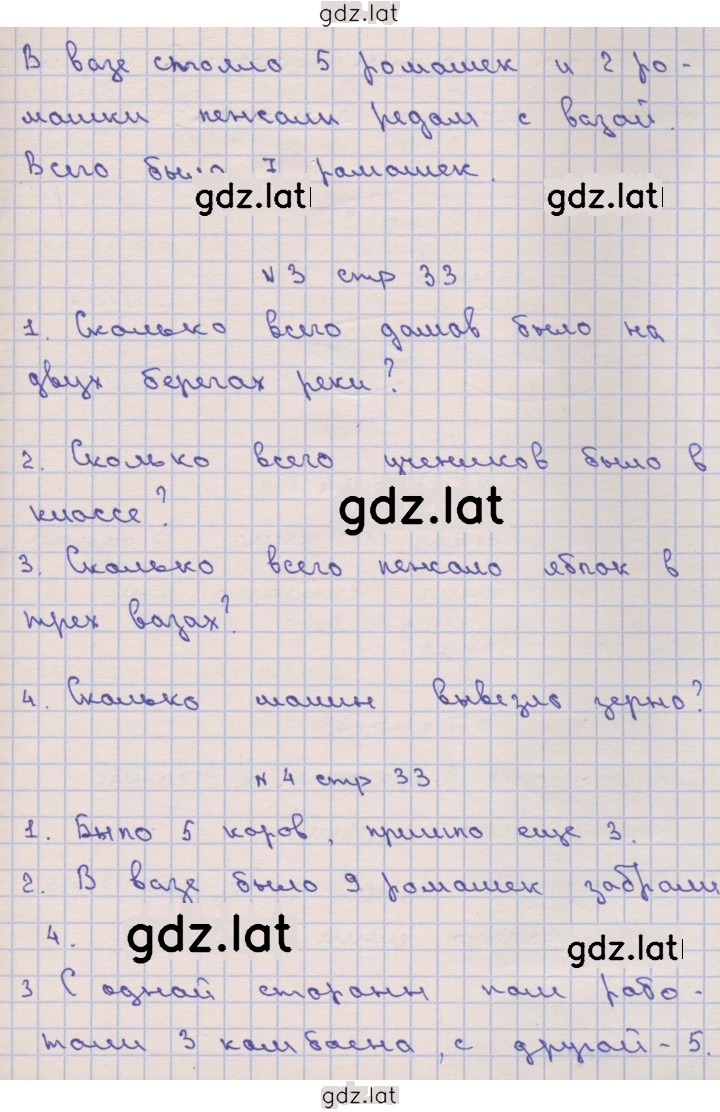 gdz.lat
В вазе стояло 5 ромашек и 2 ро-
машки лежали рядом с вазай.
Всего был 7 рамашек.
gdz.lat gdz.lat
№3 стр 33
1. Сколько всего дамав было на
двух берегах реки?
2. Сколько всего учеников было в
классе?
gdz.lat
3. Сколько всего лежало яблок в
трех вазах?
4. Сколько машин вывезло зерно?
№4 стр 33
1. Было 5 коров, пришло еще 3.
2. В вазе было 9 ромашек забрали
4.
gdz.lat gdz.lat
3 С одной стораны поля рабо-
тали 3 камбаена, с другой - 5.
gdz.lat